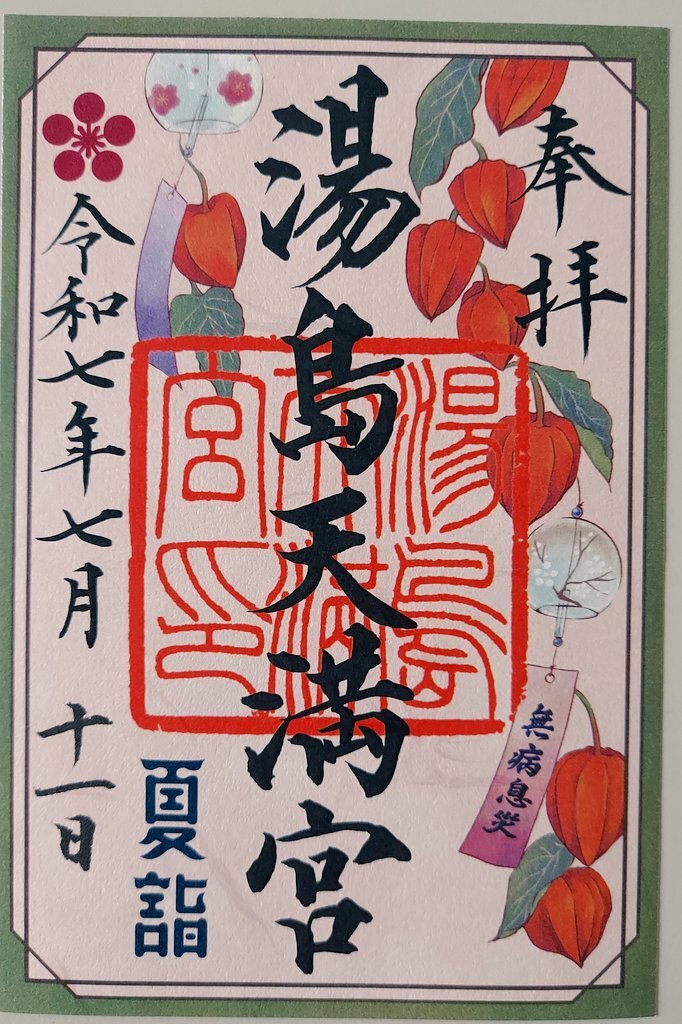 奉拝
湯島天満宮
湯島天満宮印
無病息災
夏詣
令和七年七月十一日